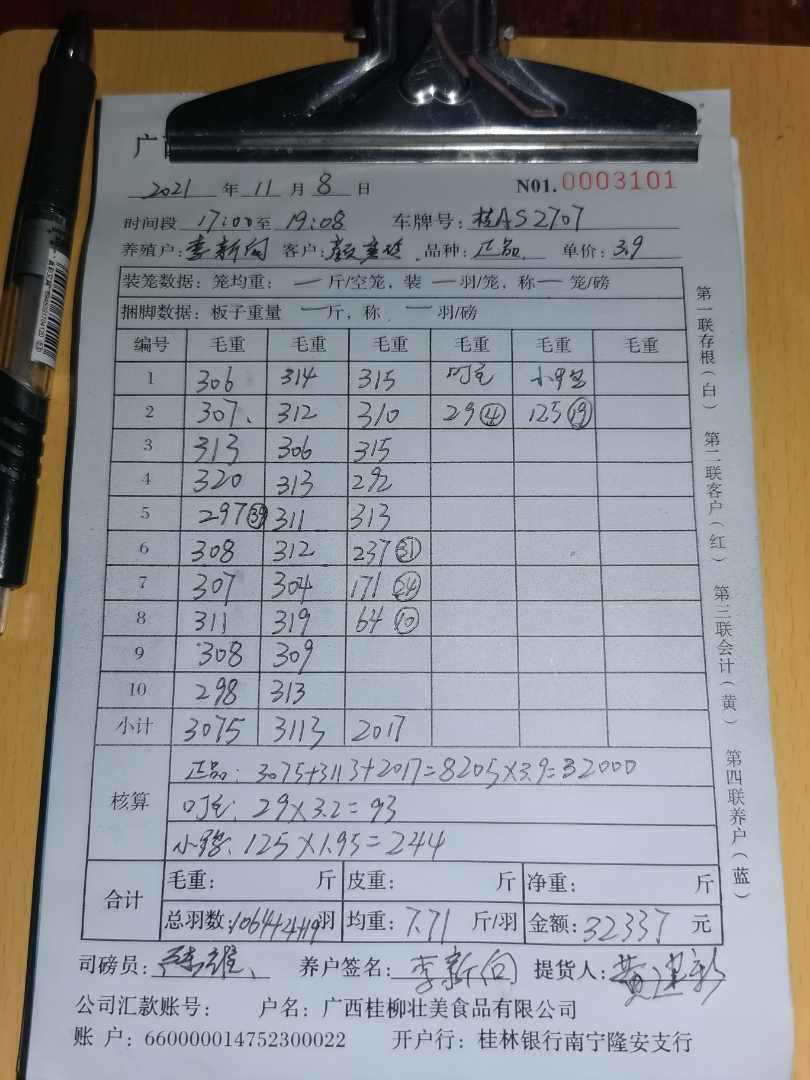 广
2021 年 11 月 8 日 N01.0003101
时间段 17:00至 19:08 车牌号: 桂AS2707
养殖户: 李新向 客户: 颜 品种: 正品 单价: 3.9
装笼数据: 笼均重: 一 斤/空笼, 装 一 羽/笼, 称 一 笼/磅
捆脚数据: 板子重量 一 斤, 称 一 羽/磅
编号 毛重 毛重 毛重 毛重 毛重 毛重
1 306 314 315 叼毛 小
2 307、 312 310 29④ 125⑲
3 313 306 315
4 320 313 292
5 297㊴ 311 313
6 308 312 237㉛
7 307 304 171㉔
8 311 319 64⑩
9 308 309
10 298 313
小计 3075 3113 2017
核算
正品: 3075+3113+2017=8205×3.9=32000
叼毛: 29×3.2=93
小 : 125×1.95=244
合计
毛重: 斤 皮重: 斤 净重: 斤
总羽数: 1064+4+19羽 均重: 7.71 斤/羽 金额: 32337 元
司磅员: 雄 养户签名: 李新向 提货人: 黄
公司汇款账号: 户名: 广西桂柳壮美食品有限公司
账 户: 660000014752300022 开户行: 桂林银行南宁隆安支行
第一联存根(白) 第二联客户(红) 第三联会计(黄) 第四联养户(蓝)